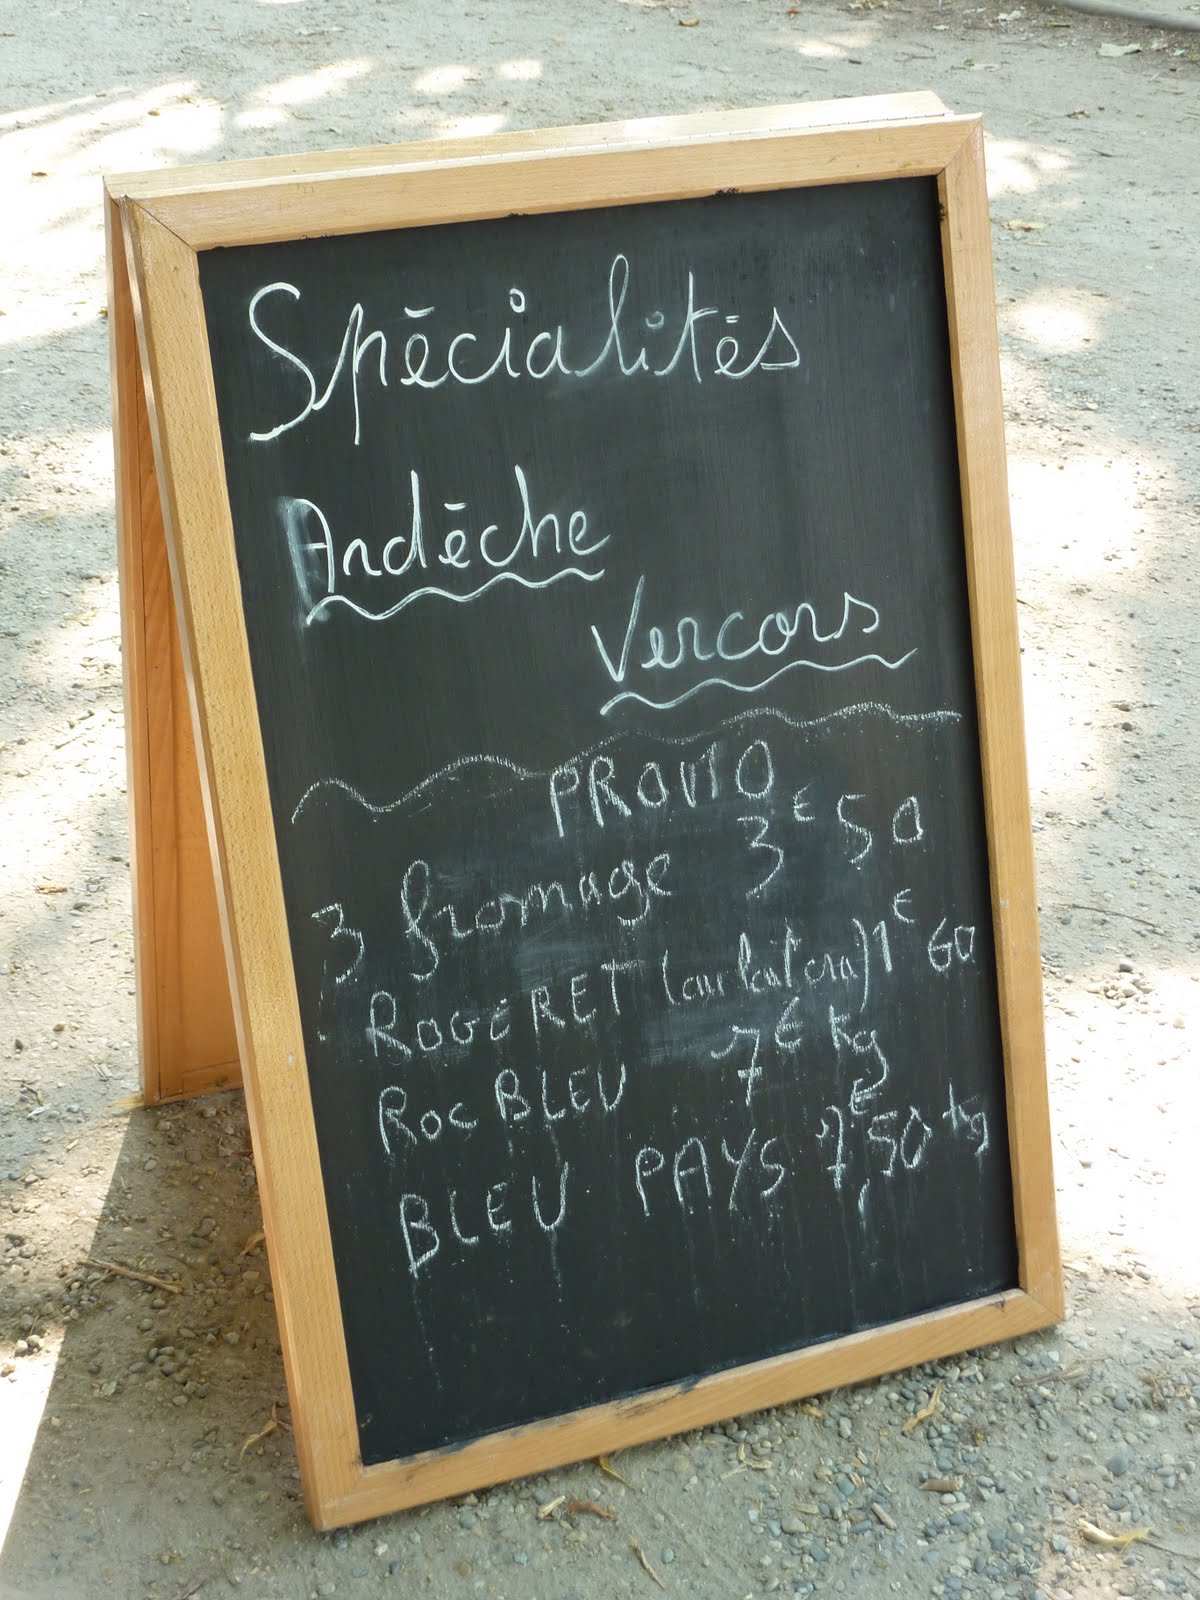 Spécialités
Ardèche
Vercors
PROMO
3 fromage 3€50
ROGERET (au lait cru) 1€60
ROC BLEU 7€ kg
BLEU PAYS 7€,50 kg